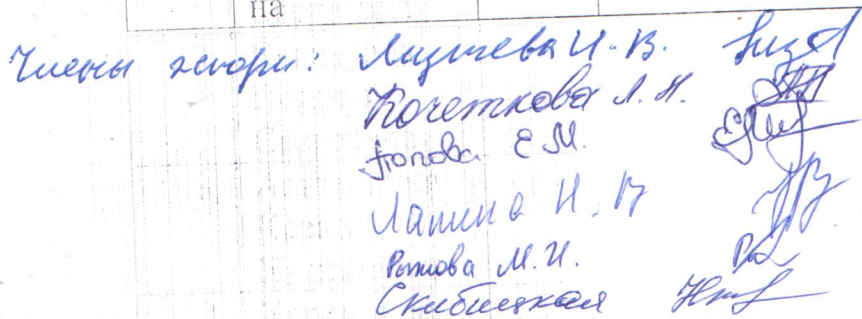 на
Члены жюри:
Кочеткова Л. Н.
Попова Е М.
Лапина Н. В
Рыжова М. И.
Скибицкая